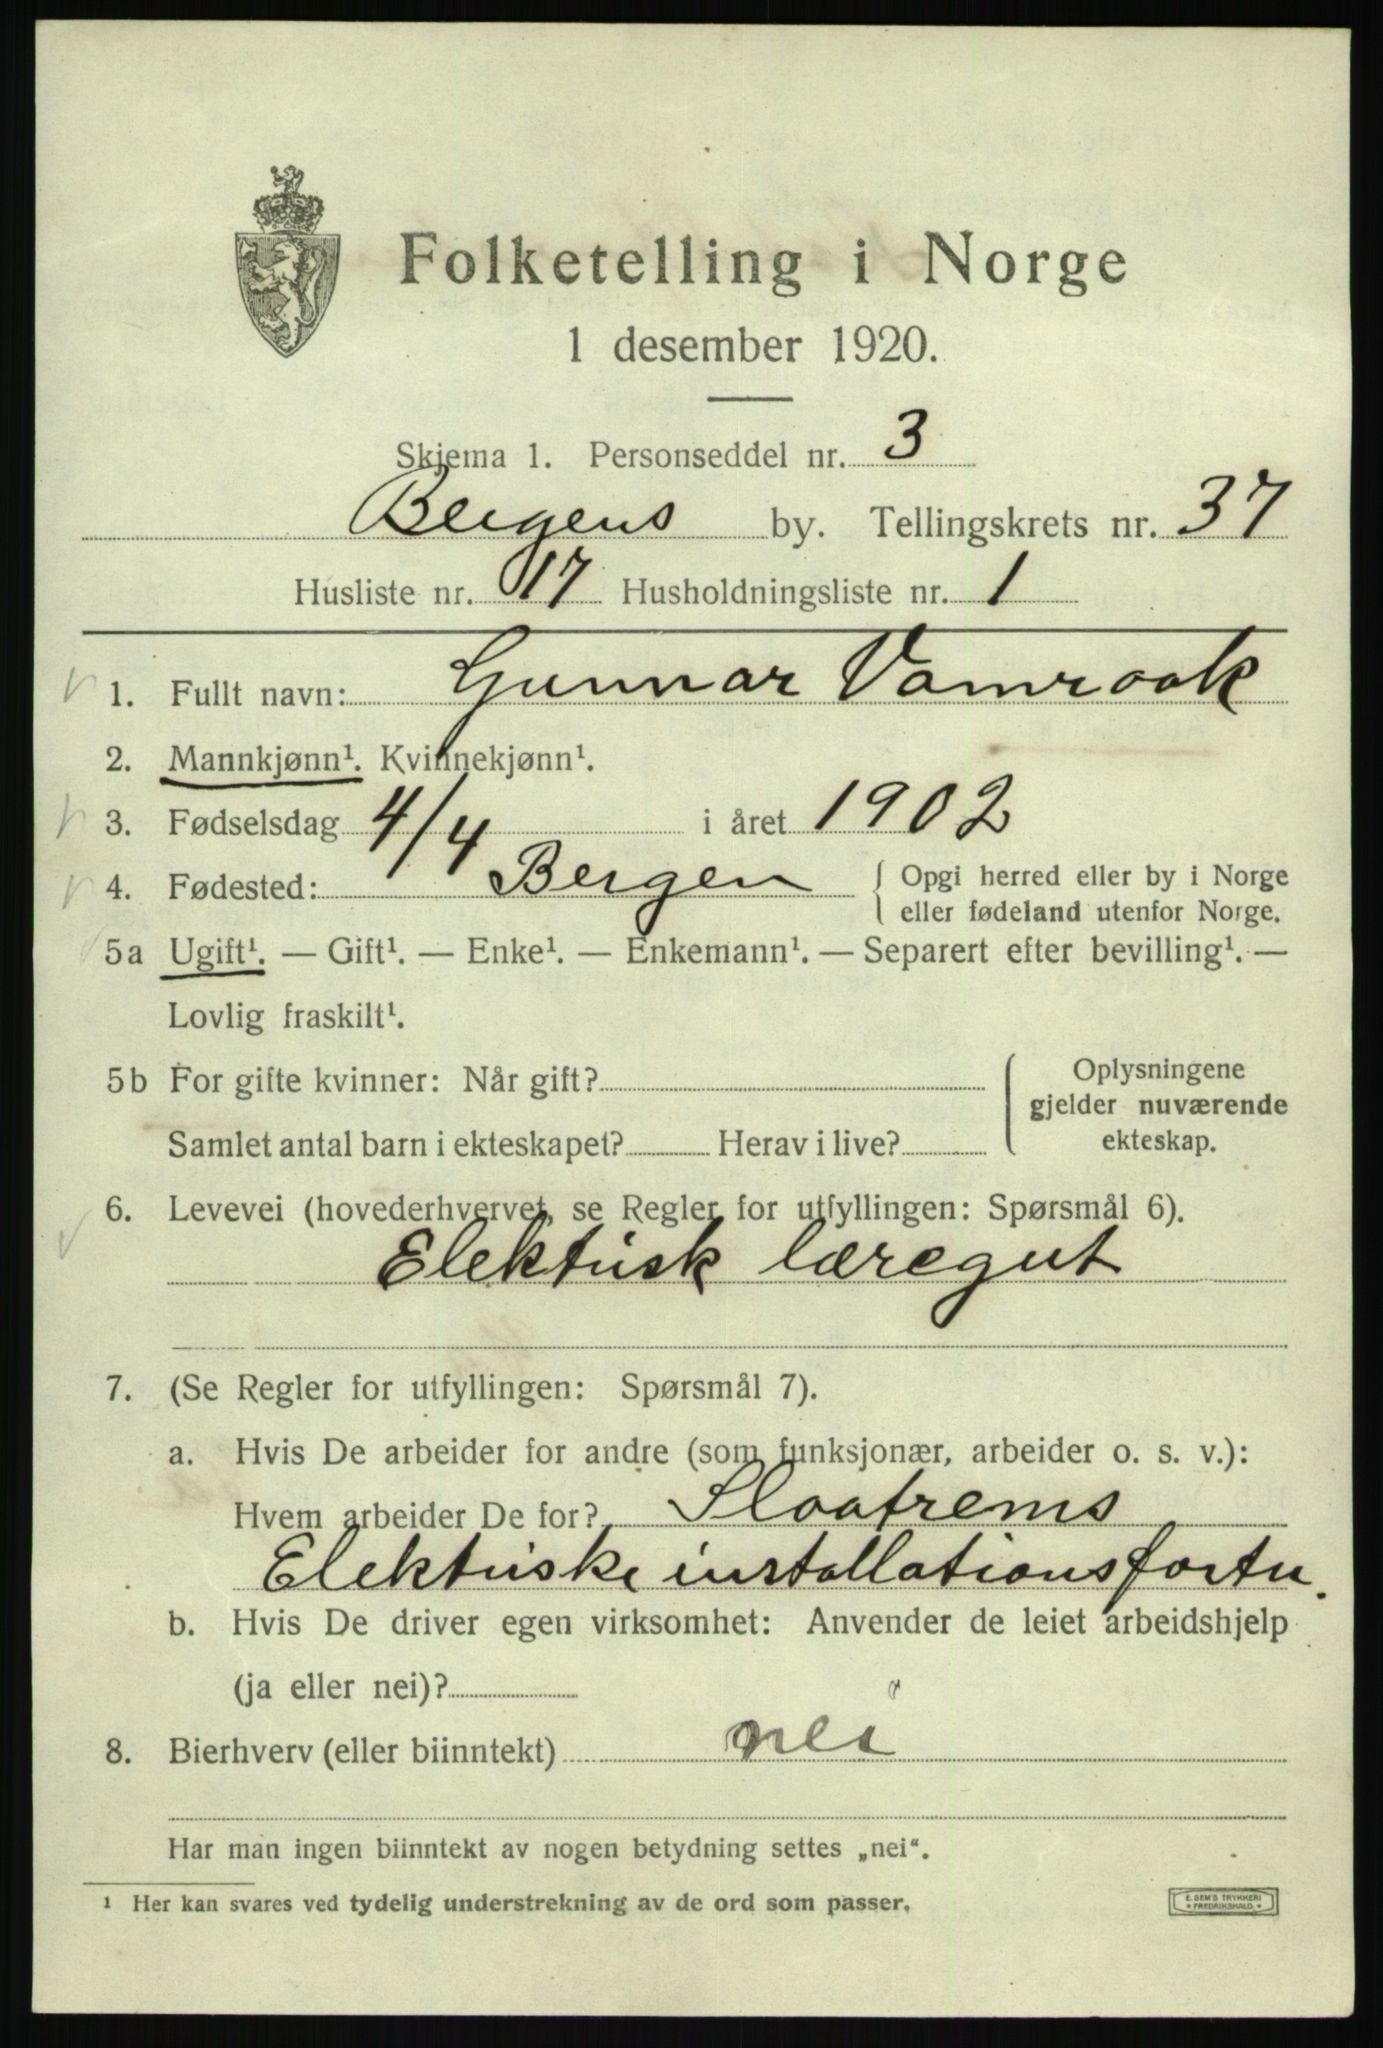 Folketelling i Norge
1 desember 1920.
Skjema 1. Personseddel nr. 3
Bergens by. Tellingskrets nr. 37
Husliste nr. 17 Husholdningsliste nr. 1
1. Fullt navn: Gunnar Vamraak
2. Mannkjønn¹. Kvinnekjønn¹.
3. Fødselsdag 4/4 i året 1902
4. Fødested: Bergen { Opgi herred eller by i Norge
eller fødeland utenfor Norge.
5a Ugift¹. — Gift¹. — Enke¹. — Enkemann¹. — Separert efter bevilling¹. —
Lovlig fraskilt¹.
5b For gifte kvinner: Når gift? Oplysningene
gjelder nuværende
Samlet antal barn i ekteskapet? Herav i live? ekteskap.
6. Levevei (hovederhvervet, se Regler for utfyllingen: Spørsmål 6).
Elektrisk læregut
7. (Se Regler for utfyllingen: Spørsmål 7).
a. Hvis De arbeider for andre (som funksjonær, arbeider o. s. v.):
Hvem arbeider De for? Slaatrems
Elektriske installationsfortn.
b. Hvis De driver egen virksomhet: Anvender de leiet arbeidshjelp
(ja eller nei)?
8. Bierhverv (eller biinntekt) nei
Har man ingen biinntekt av nogen betydning settes „nei“.
¹ Her kan svares ved tydelig understrekning av de ord som passer.
E. SEM'S TRYKKERI
• FREDRIKSHALD •